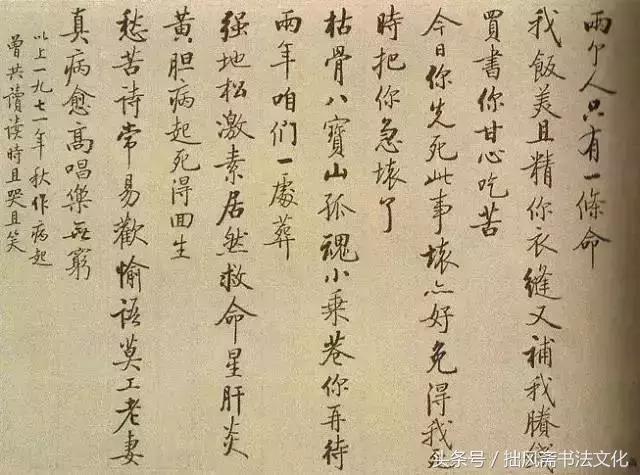 兩个人只有一條命
我飯美且精你衣縫又補我賸錢
買書你甘心吃苦
今日你先死此事壞亦好免得我死
時把你急壞了
枯骨八寶山孤魂小乘巷你再待
兩年咱們一處葬
强地松激素居然救命星肝炎
黄胆病起死得回生
愁苦诗常易歡愉语莫工老妻
真病愈高唱樂無窮
以上一九七一年秋作病起
曾共讀读時且哭且笑
头条号 / 拙风斋书法文化